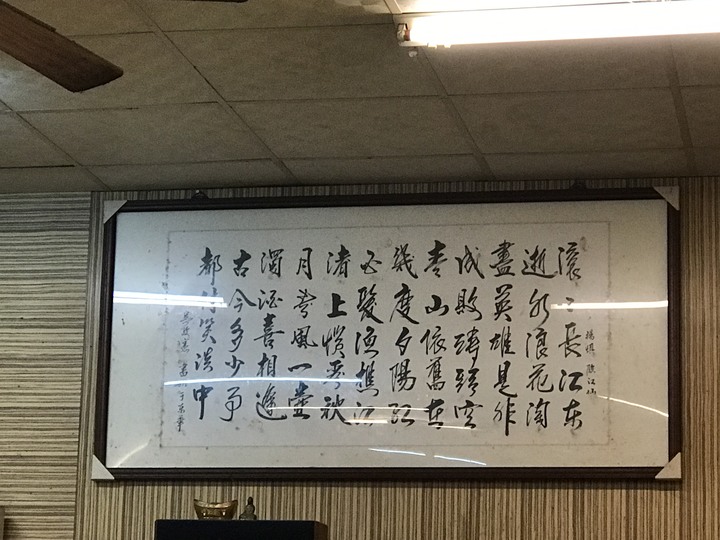 楊慎 臨江仙
滾〻長江東
逝水浪花淘
盡英雄是非
成敗轉頭空
青山依舊在
幾度夕陽紅
白髮漁樵江
渚上慣看秋
月春風一壺
濁酒喜相逢
古今多少事
都付笑談中